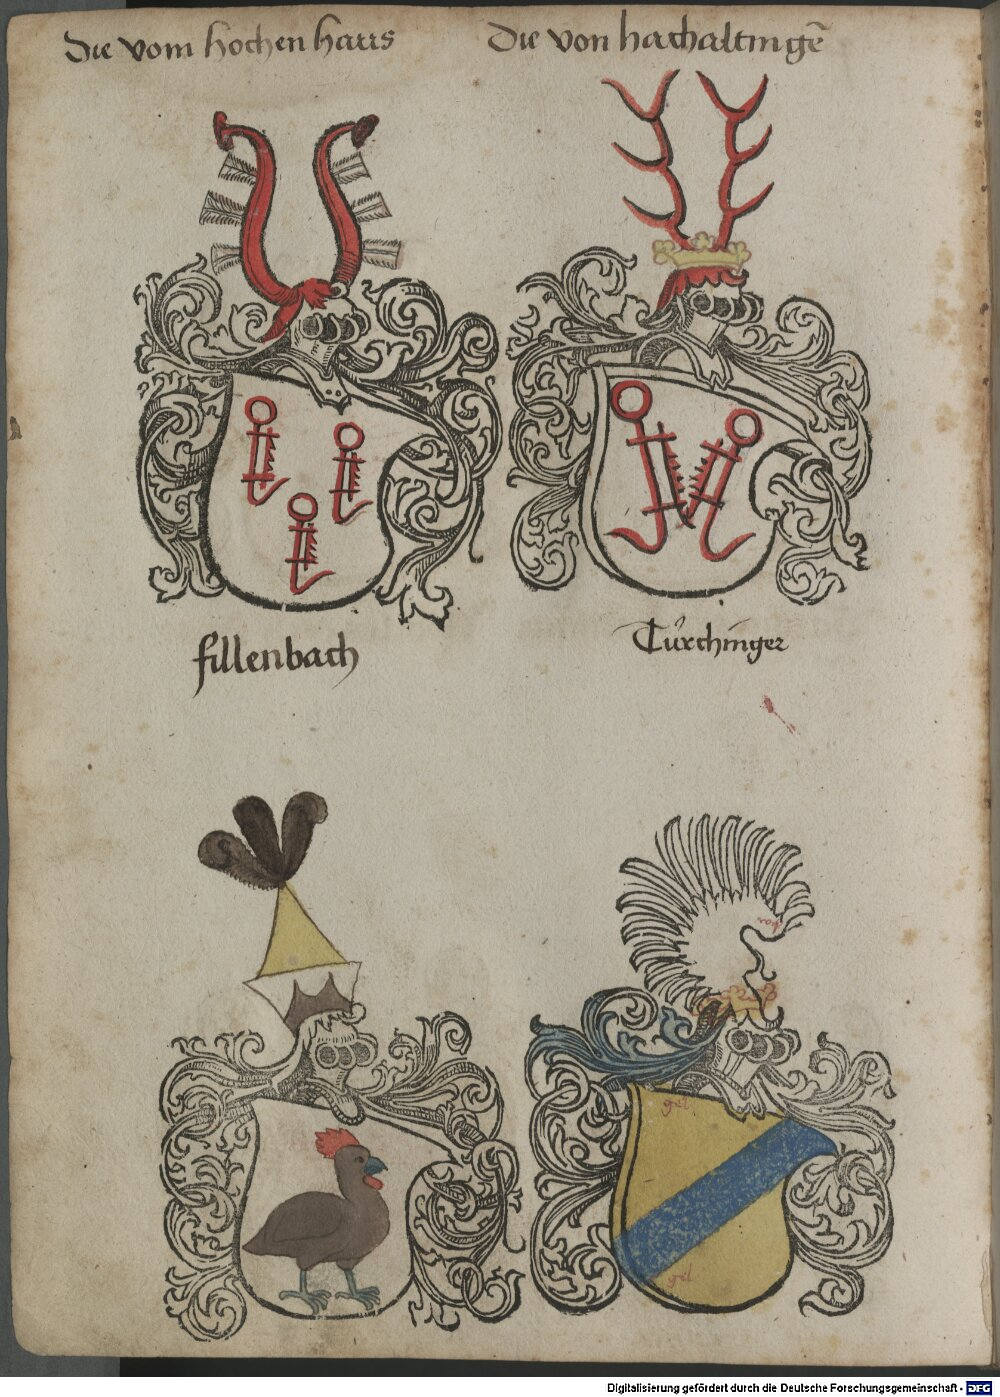 Die vom hochen hauss
Die von hachaltingē
fillenbach
Türchinger
rot
gel
gel
Digitalisierung gefördert durch die Deutsche Forschungsgemeinschaft - DFG